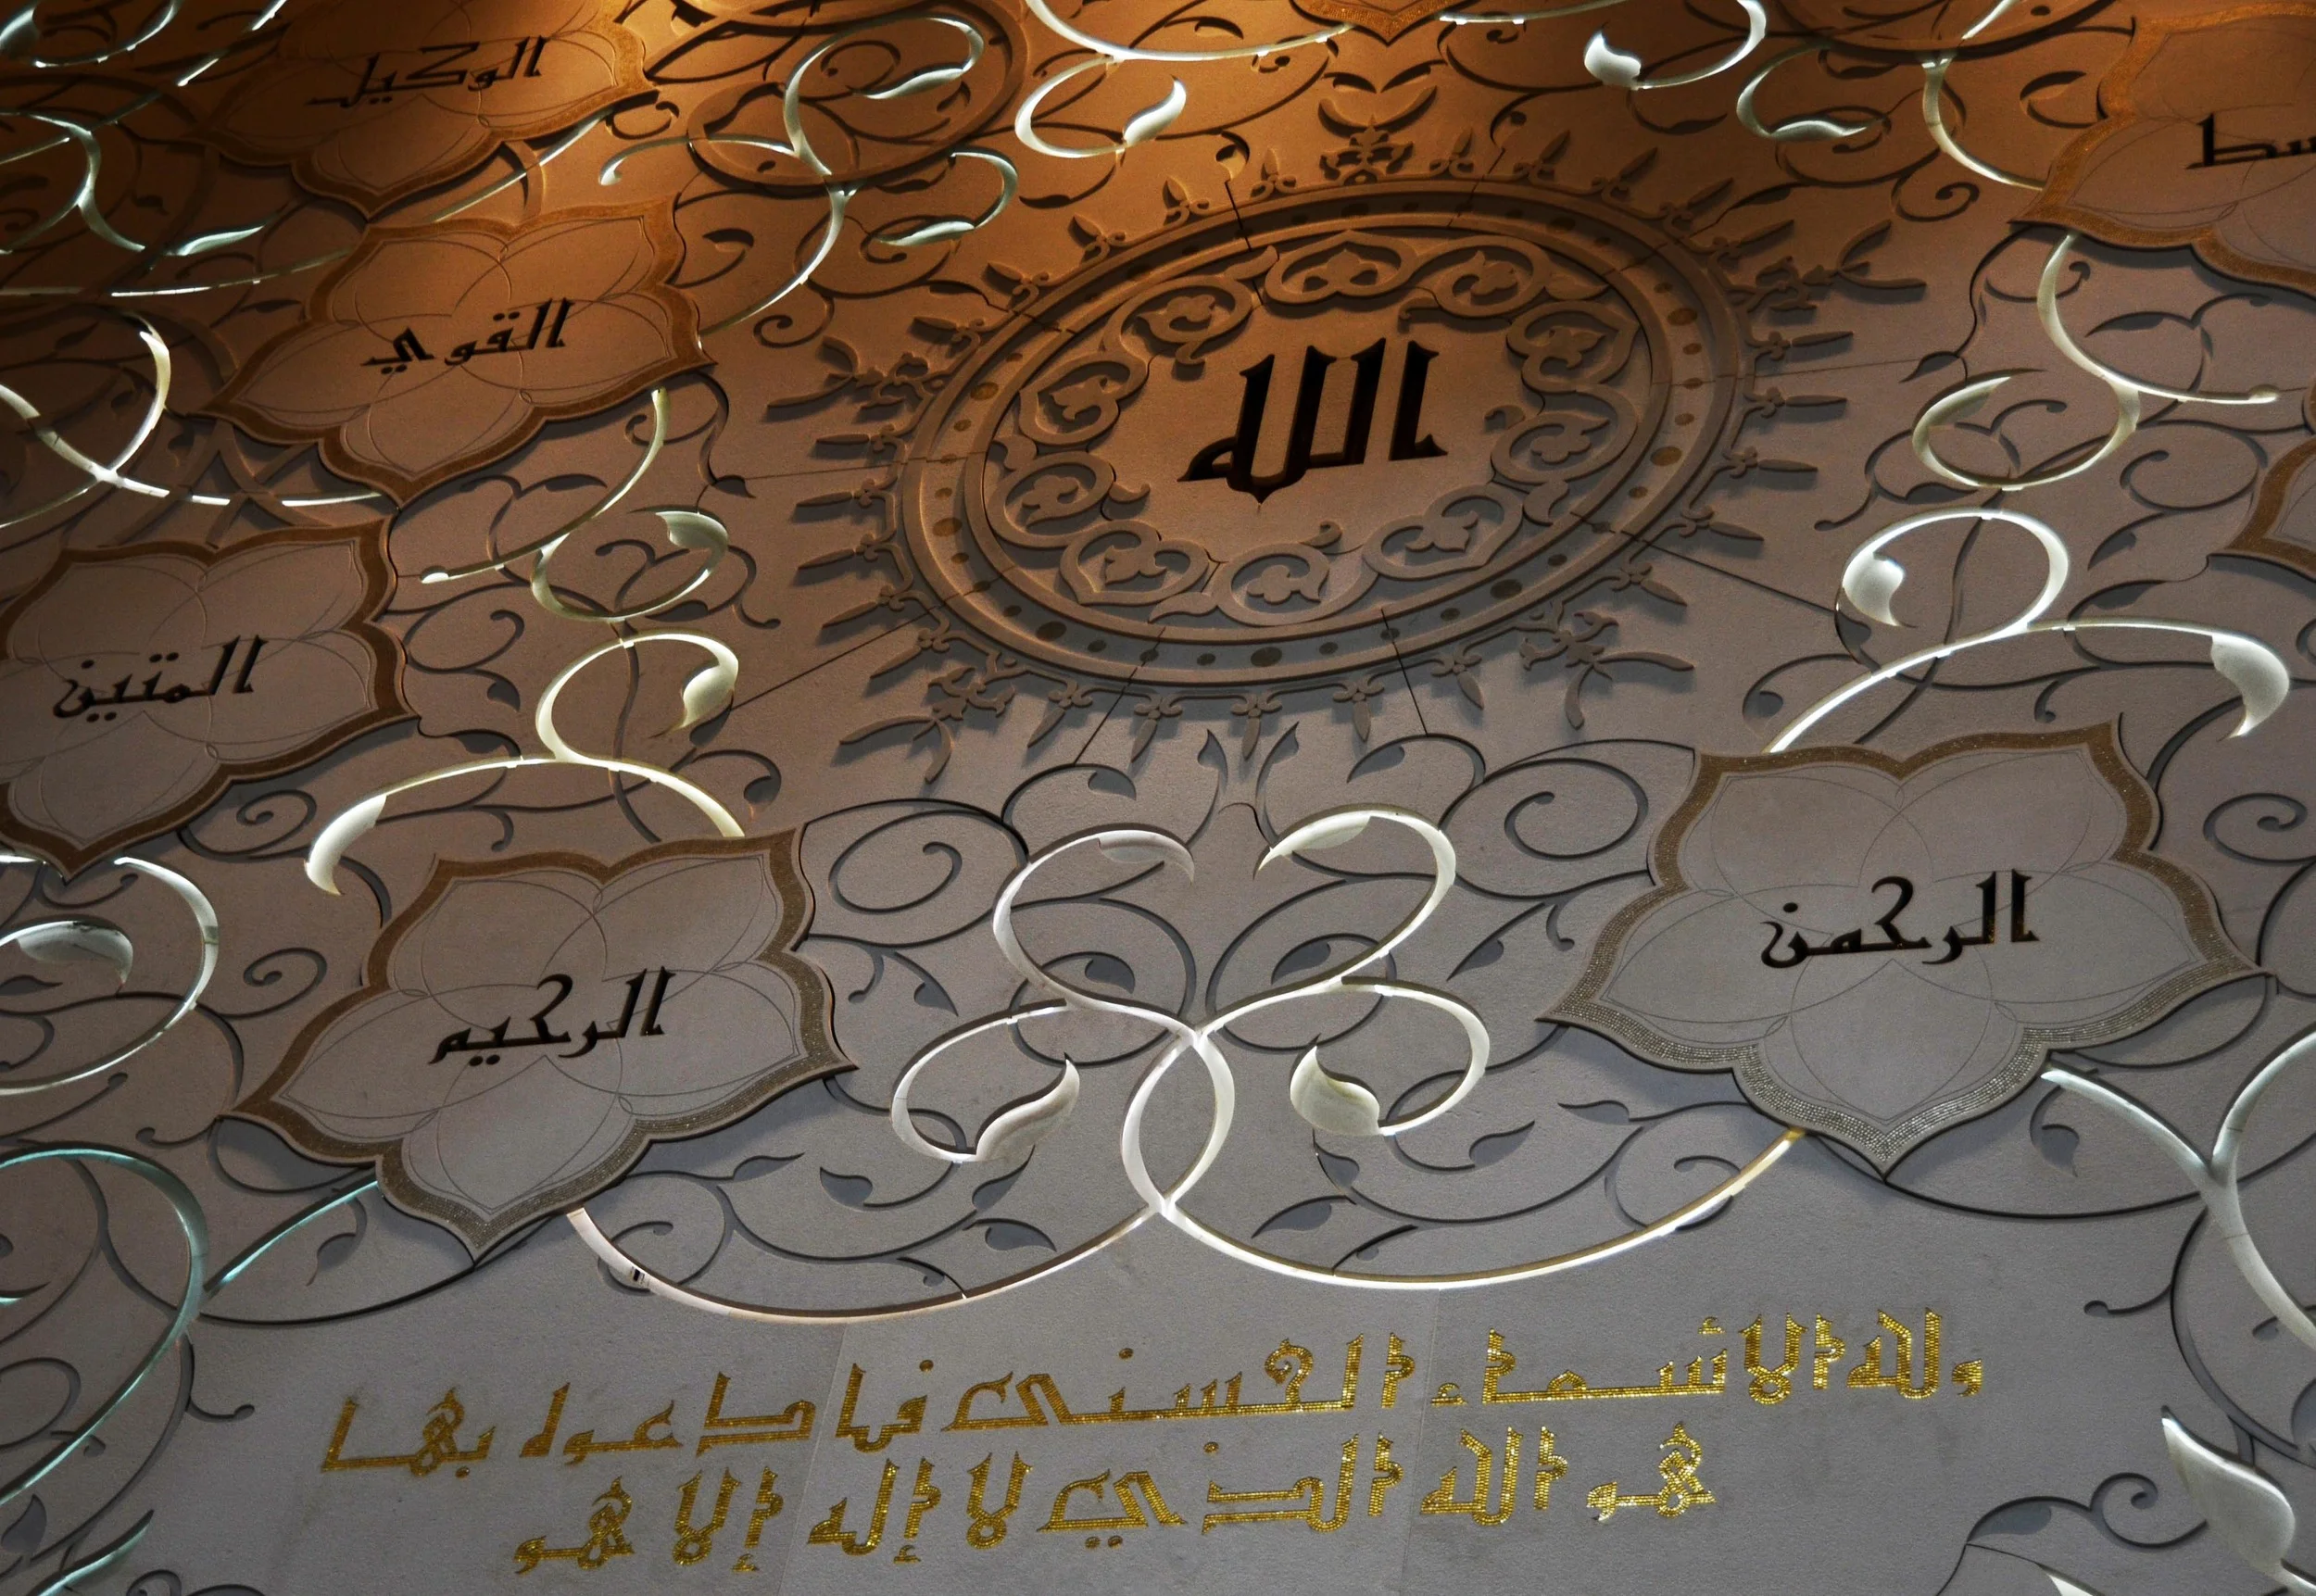 الوكيل
القوي
الله
المتين
الرحمن
الرحيم
ولله الأسماء الحسنى فادعوه بها
هو الله الذي لا إله إلا هو